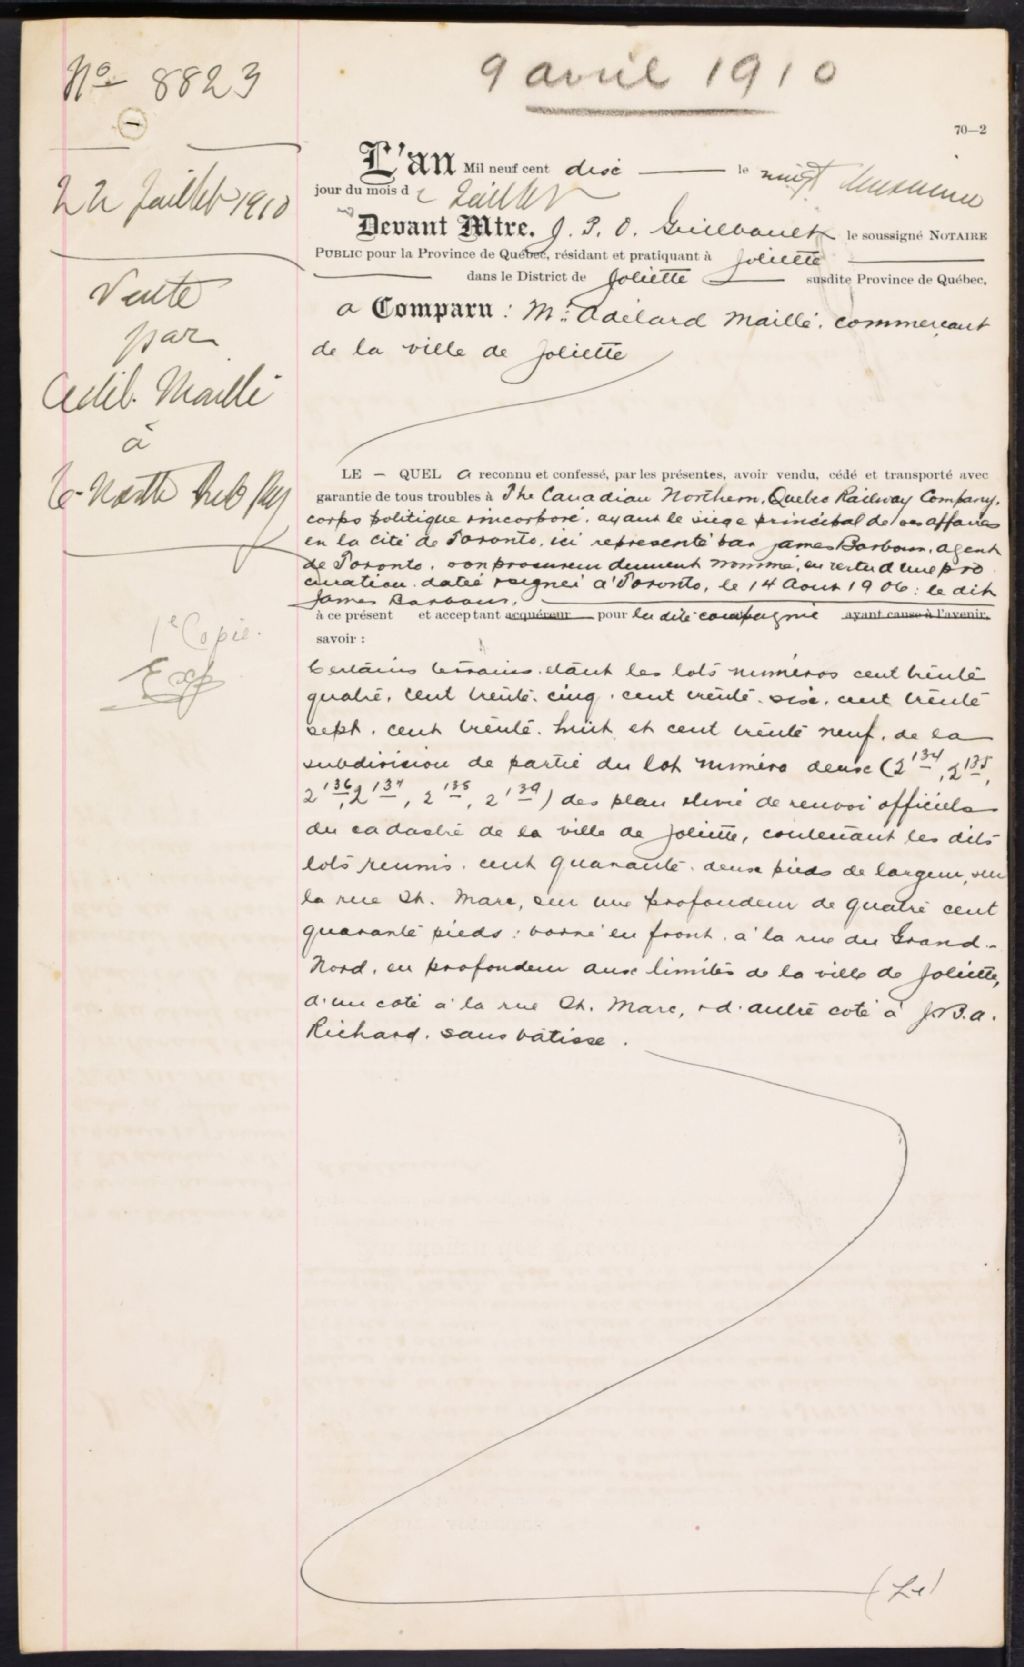 9 avril 1910
No 8823
1
22 Juillet 1910
Vente
par
Adél. Maillé
à
C. North Queb Ry
1e Copie.
70—2
L'an Mil neuf cent dix le vingt deuxième
jour du mois de Juillet
Devant Mtre. J. P. O. Guilbault le soussigné NOTAIRE
PUBLIC pour la Province de Québec, résidant et pratiquant à Joliette
dans le District de Joliette susdite Province de Québec,
a Comparu : Mr. Adélard Maillé, commerçant
de la ville de Joliette
LE — QUEL a reconnu et confessé, par les présentes, avoir vendu, cédé et transporté avec
garantie de tous troubles à The Canadian Northern, Quebec Railway Company,
corps politique & incorporé, ayant le siège principal de ses affaires
en la cité de Toronto, ici représenté par James Barbour, agent
de Toronto, son procureur dument nommé, en vertu d'une pro
curation datée & signée à Toronto, le 14 Aout 1906 : le dit
James Barbour,
à ce présent et acceptant acquéreur pour la dite compagnie ayant cause à l'avenir,
savoir :
Certains terrains étant les lots numéros cent trente
quatre, cent trente. cinq, cent trente. six, cent trente
sept, cent trente. huit et cent trente neuf, de la
subdivision de partie du lot numéro deux (2 134, 2 135,
2 136, 2 137, 2 138, 2 139) des plan & livre de renvoi officiels
du cadastre de la ville de Joliette, contenant les dits
lots réunis, cent quarante. deux pieds de largeur, sur
la rue St. Marc, sur une profondeur de quatre cent
quarante pieds : borné en front, à la rue du Grand-
Nord, en profondeur aux limites de la ville de Joliette,
d'un coté à la rue St. Marc, & d'autre coté à J.B.A.
Richard, sans batisse.
(Le)